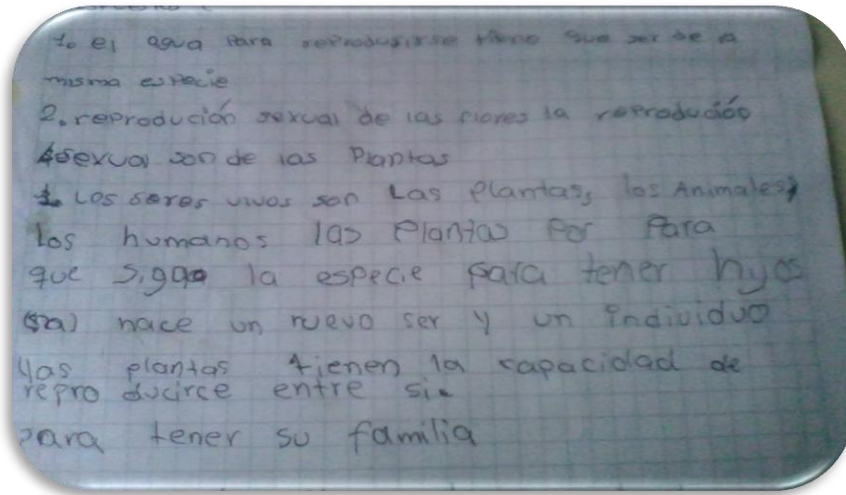 1. el agua para reprodusirse tiene que ser de la
misma especie
2. reprodución sexual de las flores la reprodución
Asexual son de las Plantas
1. Los seres vivos son Las plantas, los Animales,
los humanos las plantas por para
que sigga la especie para tener hijos
(sa) nace un nuevo ser y un individuo
las plantas tienen la capacidad de
repro ducirce entre si.
para tener su familia